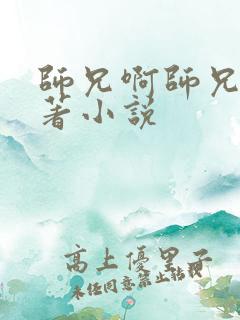 師兄啊師兄
著小說
高上優里子
未任同意禁止轉載